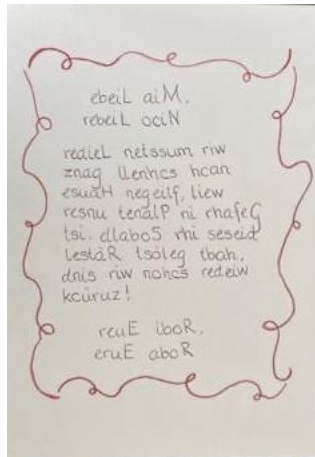 ebeiL aiM,
rebeiL ociN
redieL netssum riw
znag llenhcs hcan
esuäH negeilf, liew
resnu tenalP ni rhafeG
tsi. dlaboS rhi seseid
lestäR tsöleg tbah,
dnis riw nohcs redeiw
kcüruz!
reuE iboR,
eruE aboR